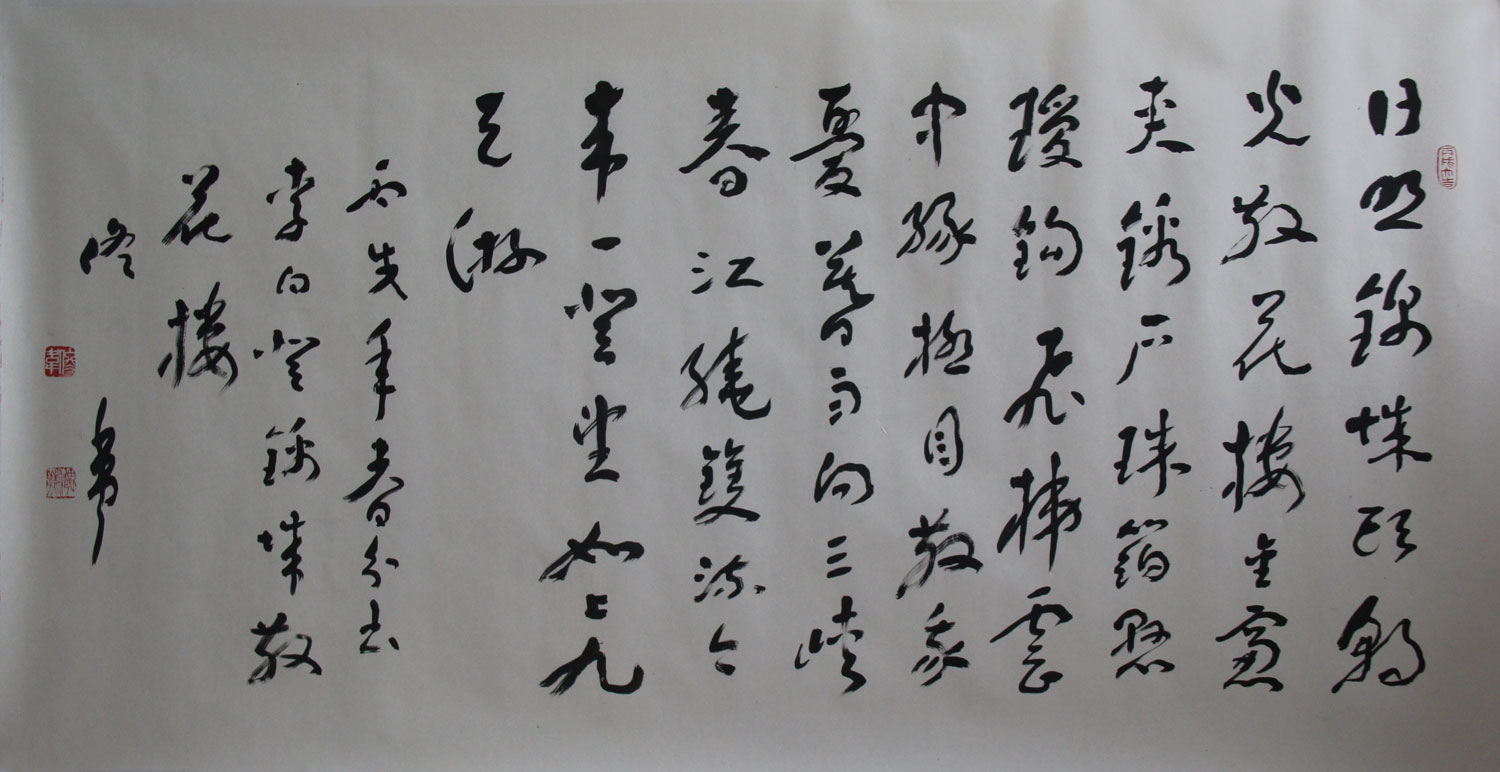 日照錦城頭朝
光散花樓金窗
夾繡戶珠箔懸
瓊鈎飛梯雲
中綠極目散我
憂暮雨向三峽
春江繞雙流今
来一登望如上九
天游
年春分书
李白登錦城散
花樓